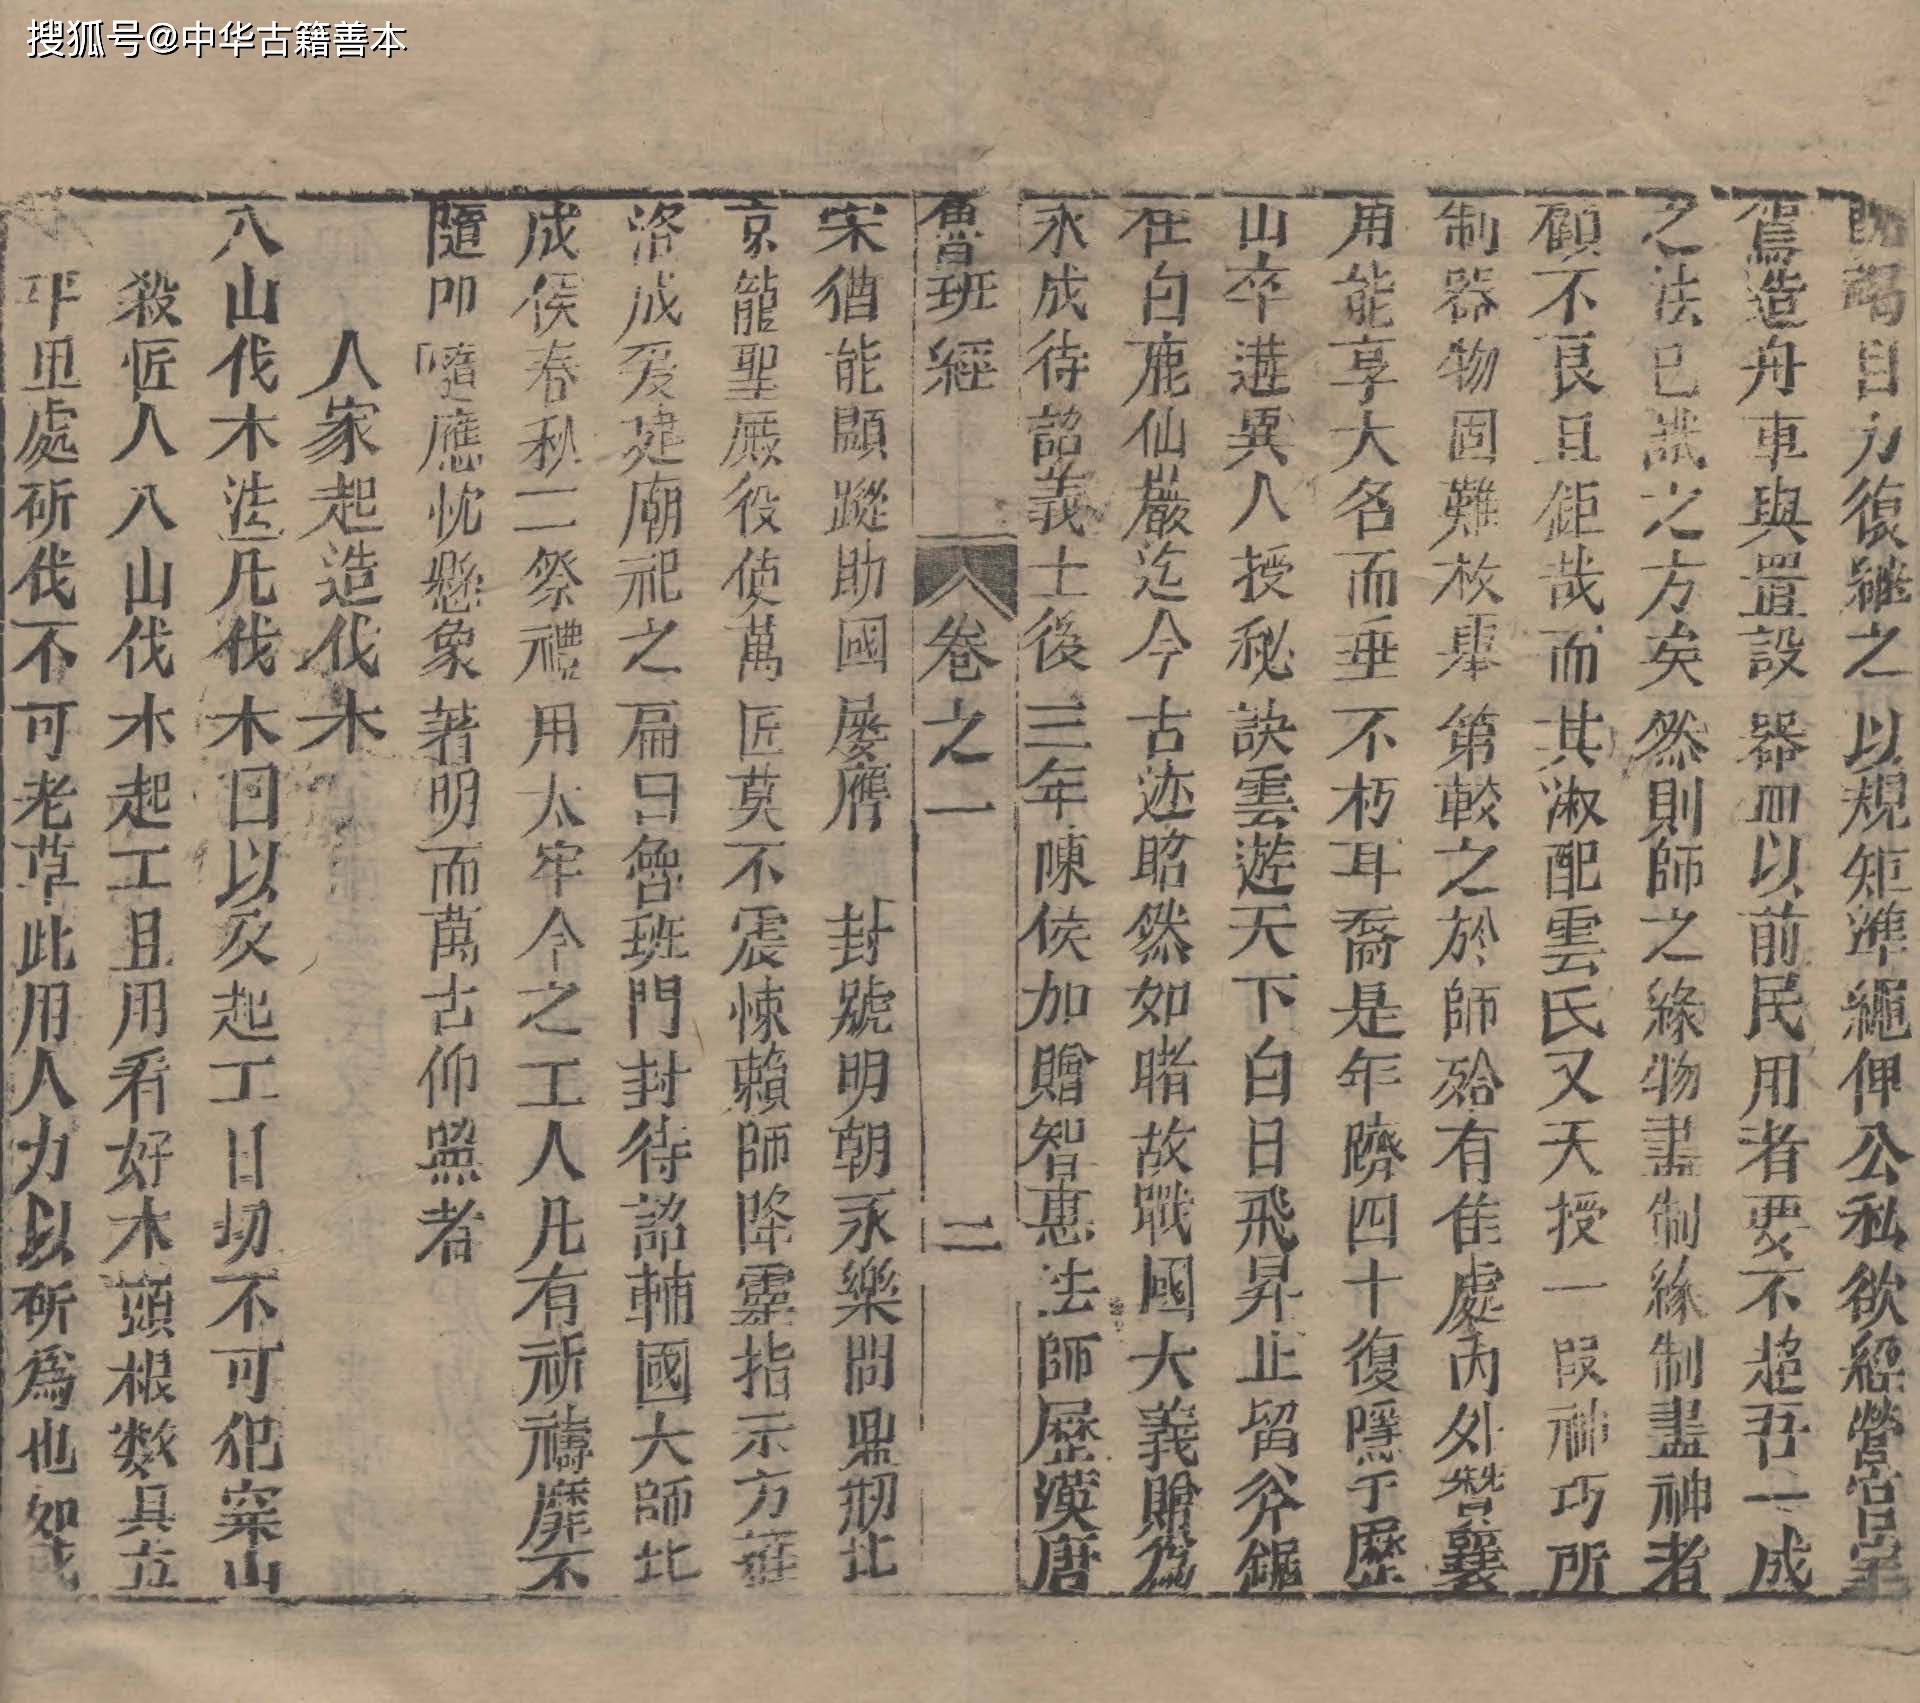 搜狐号@中华古籍善本
旣竭目力復繼之以規矩準繩俾公私欲經營宮室
駕造舟車與置設器皿以前民用者要不超吾一成
之法已試之方矣然則師之緣物盡制緣制盡神者
顧不良且鉅哉而其淑配雲氏又天授一段神巧所
制器物固難枚舉第較之於師殆有佳處內外贊襄
用能享大名而垂不朽耳裔是年躋四十復隱于歷
山卒遘異人授秘訣雲遊天下白日飛昇止留斧鋸
在白鹿仙巖迄今古迹昭然如睹故戰國大義贈爲
永成待詔義士後三年陳侯加贈智惠法師歷漢唐
魯班經 卷之一 二
宋猶能顯蹤助國屢膺 封號明朝永樂間鼎刱北
京龍聖厰役使萬匠莫不震悚賴師降靈指示方
洛成爰建廟祀之扁曰魯班門封待詔輔國大師北
成侯春秋二祭禮用太牢今之工人凡有祈禱靡不
隨叩隨應忱懸象著明而萬古仰照者
人家起造伐木
入山伐木法凡伐木日以及起工日切不可犯穴山
殺匠人入山伐木起工且用看好木頭根數具立
平坦處斫伐不可老草此用人力以斫爲也如或